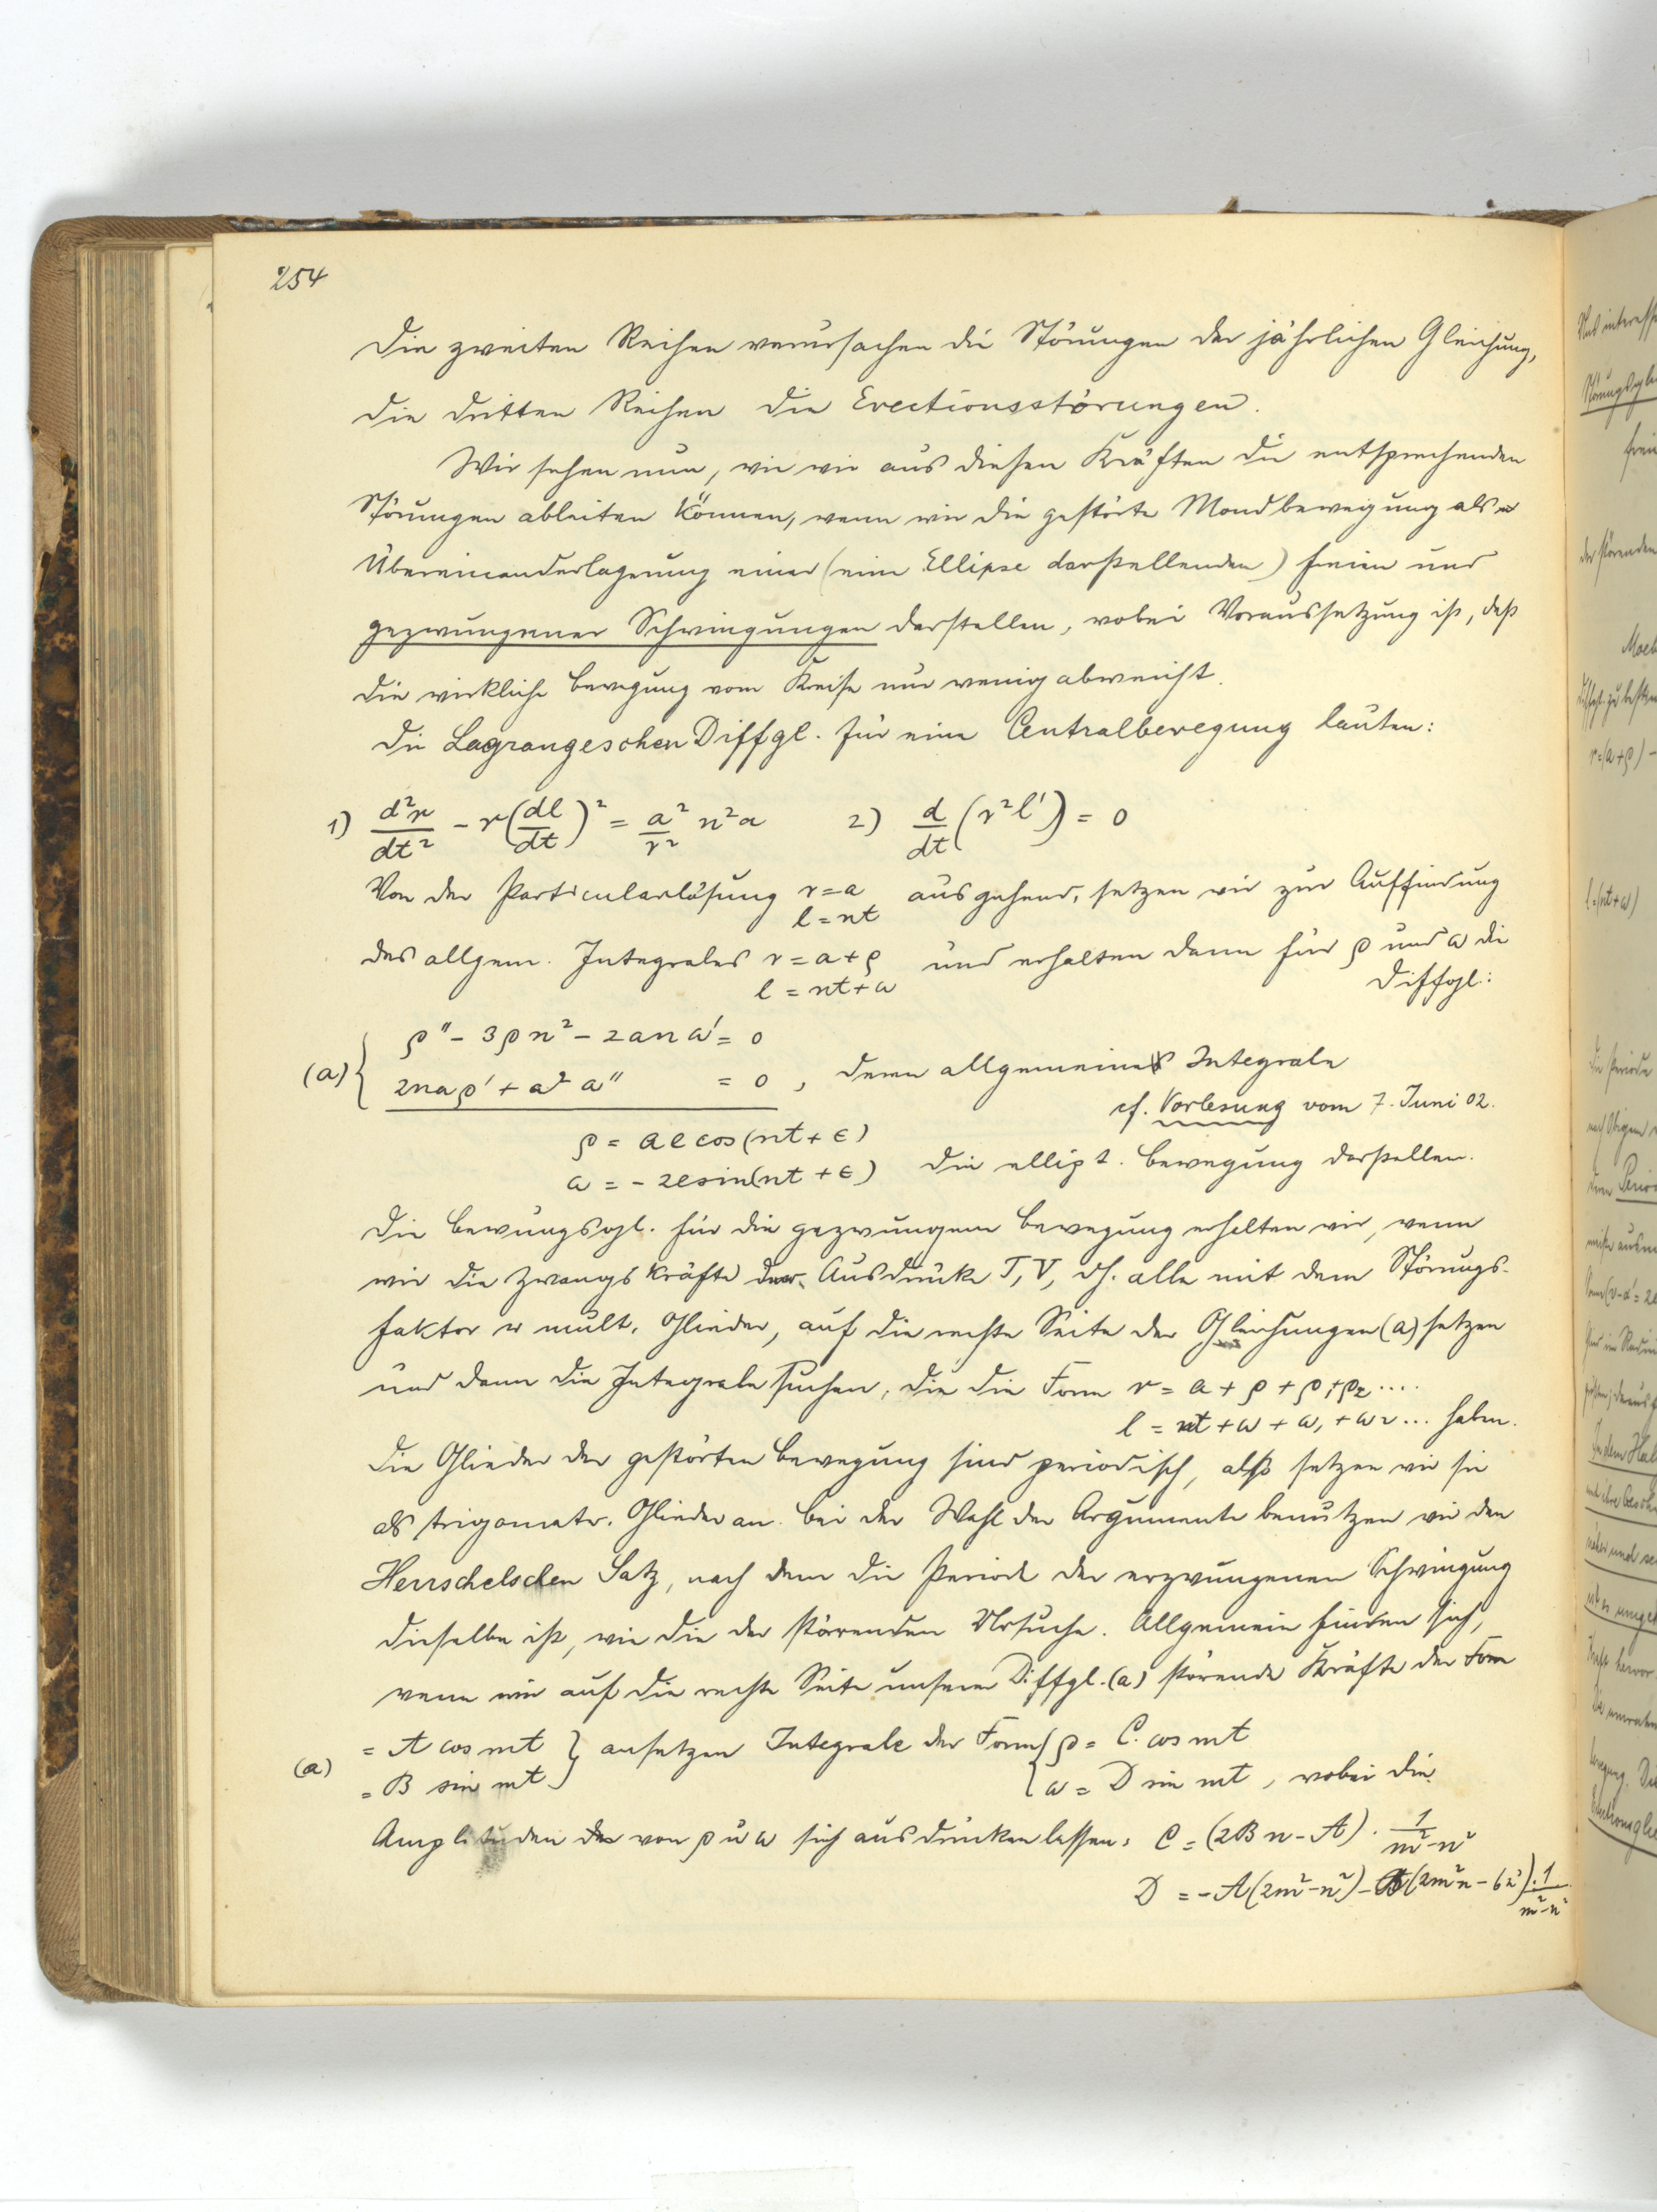 254
Die zweiten Reihen verursachen die Störungen der jährlichen Gleichung,
die dritten Reihen die Evectionsstörungen.
Wir sehen nun, wie wir aus diesen Kräften die entsprechenden
Störungen ableiten können, wenn wir die gestörte Mondbewegung als
Übereinanderlagerung einer (eine Ellipse darstellenden) freien und
gezwungener Schwingungen darstellen, wobei Voraussetzung ist, daß
die wirkliche Bewegung vom Kreise nur wenig abweicht.
Die Lagrangeschen Diffgl. für eine Centralbewegung lauten:
1) d²r/dt² - r(dl/dt)² = a²/r² n²a 2) d/dt (r²l') = 0
Von der Particularlösung r=a ausgehend, setzen wir zur Auffindung
l=nt
des allgem. Integrales r=a+ρ und erhalten dann für ρ und ω die
l = nt+ω Diffgl.:
(a) { ρ'' - 3ρn² - 2an ω' = 0
2naρ' + a² ω'' = 0, deren allgemeines Integrale
cf. Vorlesung vom 7. Juni 02.
ρ = ae cos(nt + ε)
ω = - 2e sin(nt + ε) die ellipt. Bewegung darstellen.
Die Bewungsgl. für die gezwungene Bewegung erhalten wir, wenn
wir die Zwangskräfte der Ausdrücke T, V, dh. alle mit dem Störungs-
faktor ν mult. Glieder, auf die rechte Seite der Gleichungen (a) setzen
und dann die Integrale suchen, die die Form r = a + ρ + ρ₁+ρ₂ ....
l = nt + ω + ω₁ + ω₂ ... haben.
Die Glieder der gestörten Bewegung sind periodisch, also setzen wir sie
als trigometr. Glieder an. Bei der Wahl der Argumente benutzen wir den
Herrschelschen Satz, nach dem die Periode der erzwungenen Schwingung
dieselbe ist, wie die der störenden Ursache. Allgemein finden sich,
wenn wir auf die rechte Seite unserer Diffgl. (a) störende Kräfte der Form
(a) = A cos mt } ansetzen Integrale der Form { ρ = C. cos mt
= B sin mt } { ω = D sin mt, wobei die
Amplituden der von ρ u ω sich ausdrücken lassen: C = (2Bn - A) · 1/m²-n²
D = -A(2m²-n²) - B(2m²n - 6n²) · 1/m²-n²